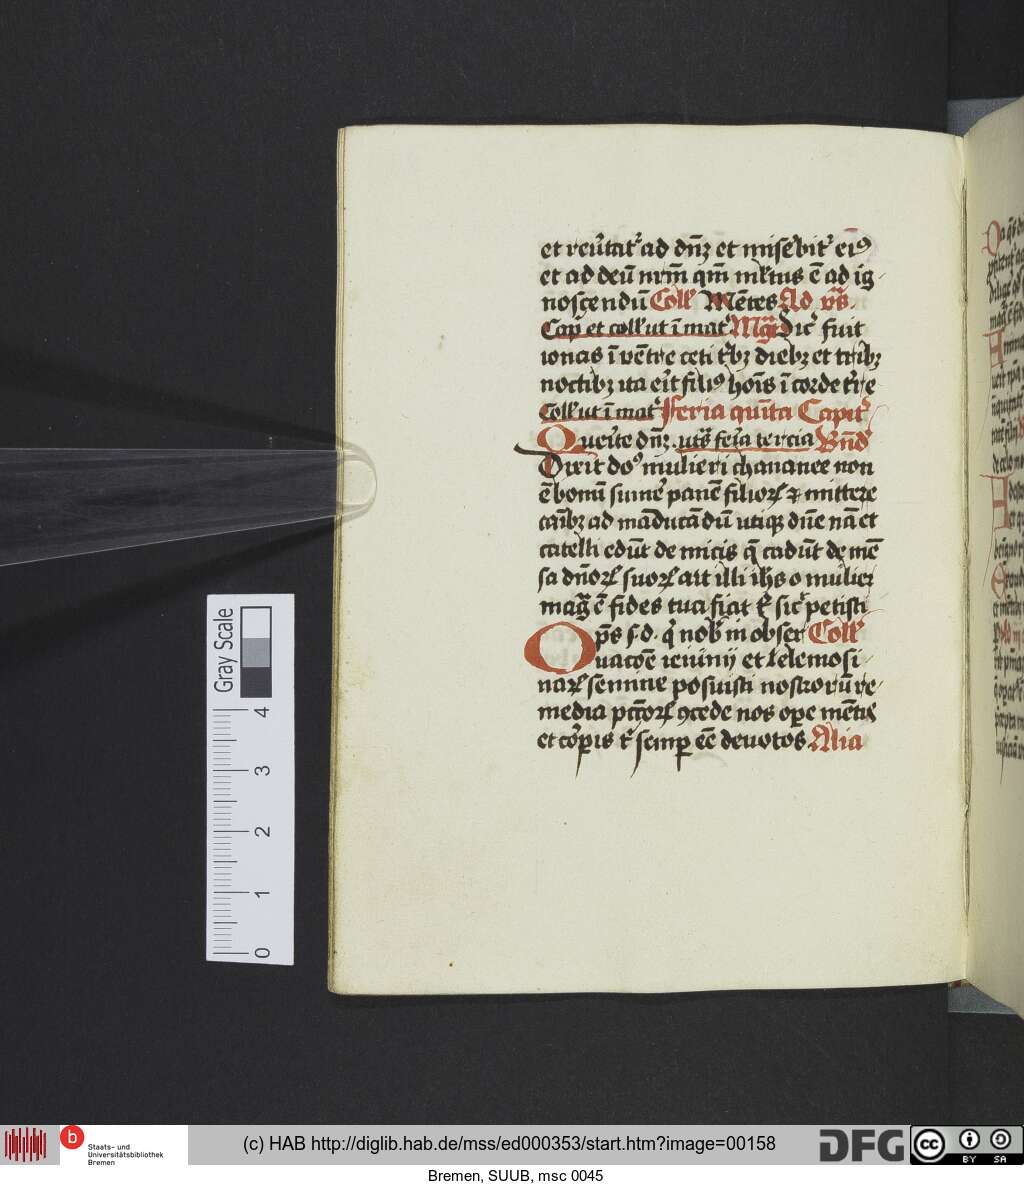 et reṽtat᷑ ad dñꝫ et miſebit᷑ eiꝰ
et ad deũ nr̃m qm̃ ml̃tus ẽ ad ig
noſcendũ Coll̃ Mẽtes Ad vs̃
Cap̃ et coll̃ ut ĩ mat᷑ Mag̃ Sic᷑ fuit
ionas ĩ vẽtre ceti t̾bꝫ diebꝫ et trib̾ꝫ
noctibꝫ ita er̃it filiꝰ hoĩs ĩ corde tr̃e
Coll̃ ut ĩ mat᷑ Feria quĩta Capit᷑
Quer̃ite dñꝫ uts̃ fer̃ia tercia Bñd᷑
Dixit dõs mulieri chananee non
ẽ bonũ sume᷑ panẽ filioꝝ ⁊ mittere
caĩbꝫ ad mãducãdũ utiqꝫ dñe nã et
catelli edũt de micis q̃ cadũt de mẽ
ſa dñoꝝ ſuoꝝ ait illi ih̃s o mulier
mag̃ ẽ fides tua fiat t̾ ſic᷑ petiſti
Op̃s s d q̾ nob̾ in obſer Coll̃
uacõe ieiunij et helemoſi
naꝝ semine posuiſti noſtrorũ re
media pcc̃oꝝ ꝯcede nos oꝑe mẽtis
et cor̃ꝑis t̾ ſemꝑ eẽ deuotos Alia
Gray Scale
4
3
2
1
0
b
Staats- und
Universitätsbibliothek
Bremen
(c) HAB http://diglib.hab.de/mss/ed000353/start.htm?image=00158
DFG
cc
BY SA
Bremen, SUUB, msc 0045